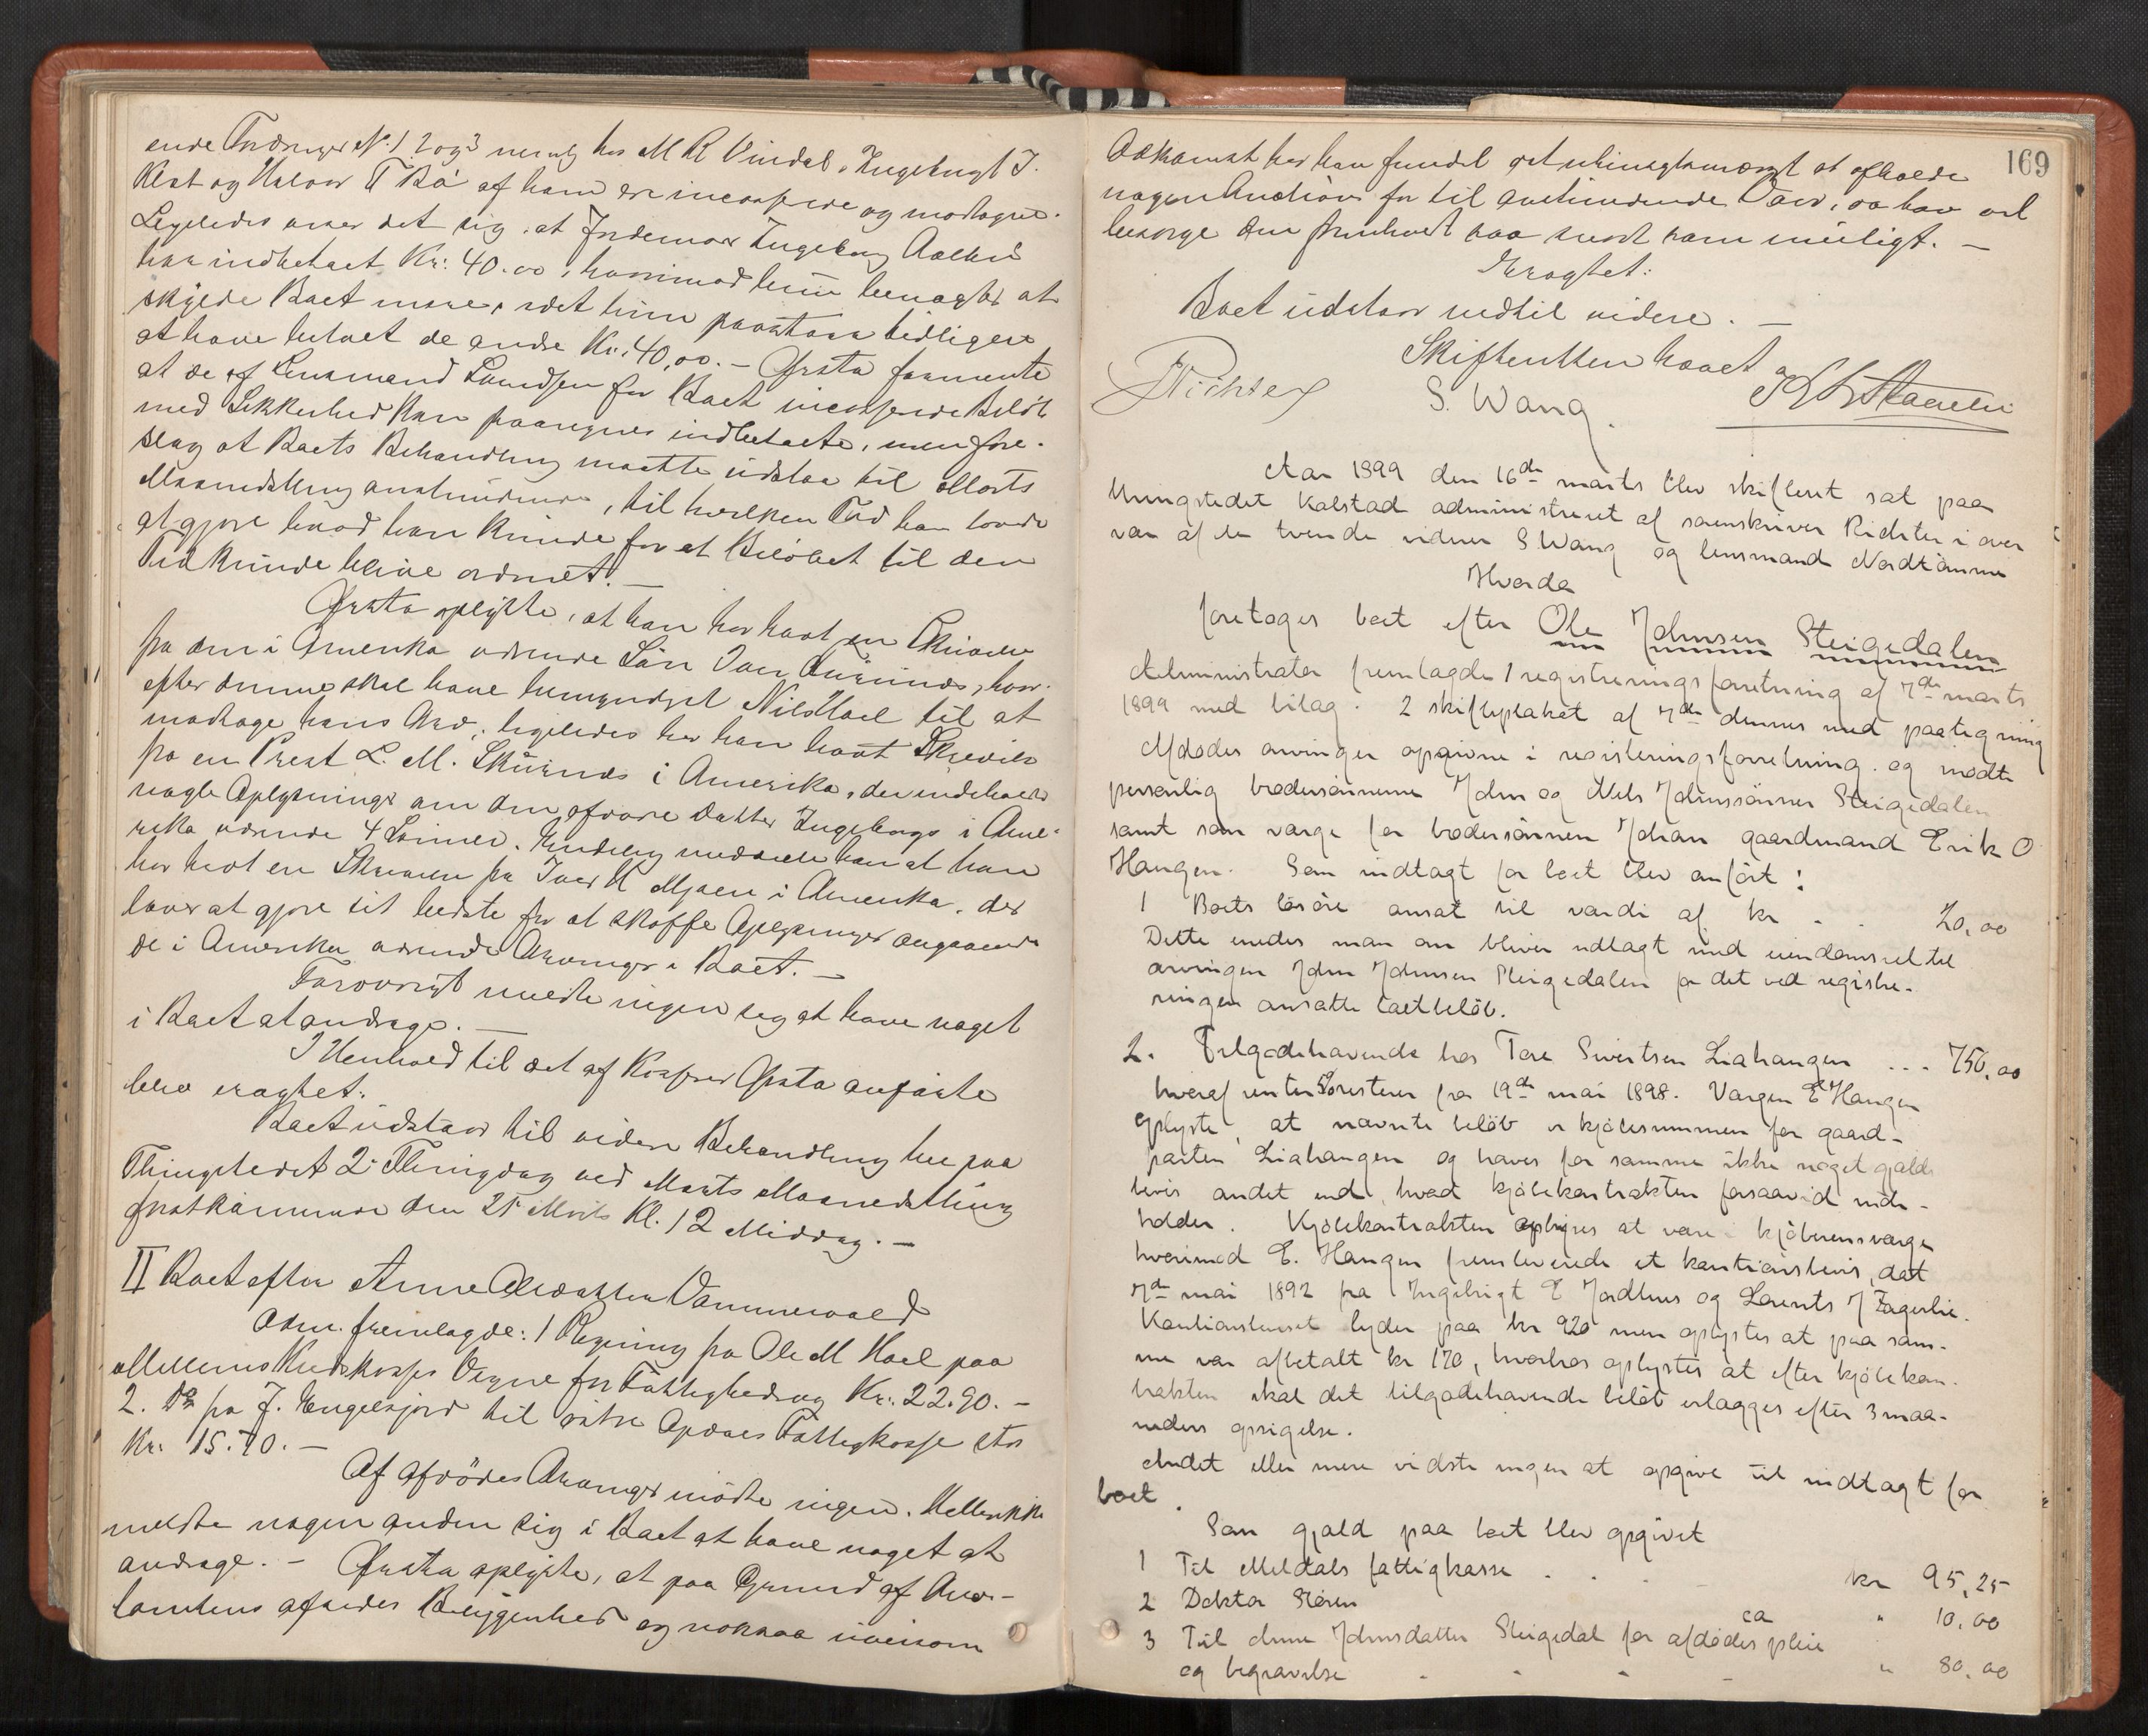 ende Fordringer N. 1 2 og 3 nemlig hos M R Vindal, Ingebrigt J.
og Halvor T Bø af ham ere incasserede og modtagne.
Ligeledes viser det sig, at Jordemor Ingeborg Aalbu
har indbetalt Kr: 40.00, hvorimod hun benægter at
skylde Boet mere, idet hun paastaar tidligere
at have betalt de andre Kr: 40,00. — Ørsta formente
at de af Lensmand for Boet incasserede Beløb
med Sikkerhed kan paaregnes indbetalte, men fore-
slog at Boets Behandling maatte udstaa til Marts
Maanedsthing anstundende, til hvilken Tid han lovede
at gjøre hvad han kunde for at Beløbet til den
Tid kunde blive ordnet. —
Ørsta oplyste, at han har havt en Skrivelse
fra den i Amerika værende Søn Ivar, hvor-
efter denne skal have bemyndiget Nils Hoel til at
modtage hans Arv, ligeledes har han havt Skrivelse
fra en Prest L. M. i Amerika, der indeholder
nogle Oplysninger om den afdøde Datter Ingeborgs i Ame-
rika værende 4 Sønner. Endelig meddelte han at han
har havt en Skrivelse fra Ivar K Mjøen i Amerika, der
lover at gjøre sit bedste for at skaffe Oplysninger angaaende
de i Amerika værende Arvinger i Boet. —
Forøvrigt meldte ingen sig at have noget
i Boet at andrage. —
I Henhold til det af Ørsta anførte
blev eragtet:
Boet udstaar til videre Behandling her paa
Thingstedet 2. Thingdag ved Marts Maanedsthing
førstkommende den 25 Marts Kl. 12 Middag. —
II Boet efter Anne Vammervold
Adm. fremlagde: 1 Regning fra Ole M Hoel paa
Vegne for Fattighedsog Kr: 22.90. —
2. Do fra J. Engelsjord til østre Opdals Fattigkasse stor
Kr: 15.70. —
Af afdødes Arvinger mødte ingen. Heller ikke
meldte nogen anden sig i Boet at have noget at
andrage. — Ørsta oplyste, at paa Grund af Arve-
lodtens afsides Beliggenhed og ogsaa
169
har han fundet det uhensigtsmæssigt at afholde
nogen Auction for til anstundende Vaar, da han vil
besørge den fremhævet saa snart som muligt. —
Eragtet:
Boet udstaar indtil videre. —
Skifteretten hævet
Richter S. Wang
Aar 1899 den 16de marts blev skifteret sat paa
thingstedet Kalstad administreret af sorenskriver Richter i over
vær af de tvende vidner S Wang og lensmand Nordtømme
Hvorda
foretages boet efter Ole Johnsen Steigedalen
Administrator fremlagde 1 registreringsforretning af 7de marts
1899 med bilag. 2 skifteplakat af 7de dennes med paategning
Afdødes arvinger opgivne i registreringsforretning. og mødte
personlig brodersønnerne John og Nels Johnssønner Steigedalen
samt som værge for brodersønnen Johan gaardmand Erik O
Haugen. Som indtægt for boet blev anført:
1 Boets løsøre ansat til værdi af kr . . 20,00
Dette enedes man om bliver udlagt med eiendomsret til
arvingen John Johnsen Steigedalen for det ved registre-
ringen ansatte taxtbeløb.
2. Tilgodehavende hos Tore Sivertsen Liahaugen ... 750,00
hvoraf renter resterer fra 19de mai 1898. Værgen E Haugen
oplyste, at nævnte beløb er kjøbesummen for gaard-
parten Liahaugen og haves for samme ikke noget gjælds
bevis andet end hvad kjøbekontrakten forsaavidt inde-
holder. Kjøbekontrakten oplyses at være i kjøberens værge
hvorimod E. Haugen fremleverede et kautionsbevis, dat
7de mai 1892 fra Ingebrigt E Jordhus og Lorents J Fagerlie.
Kautionsbeviset lyder paa kr 920 men oplystes at paa sam-
me var afbetalt kr 170, hvorhos oplystes at efter kjøbekon-
trakten skal det tilgodehavende beløb erlægges efter 3 maa-
neders opsigelse.
Andet eller mere vidste ingen at opgive til indtægt for
boet.
Som gjæld paa boet blev opgivet
1 Til Meldals fattigkasse . . . kr 95,25
2 Doktor Støren " 10,00
3 Til Anne Johnsdatter Steigedal for afdødes pleie ca
og begravelse - - - - " 80,00